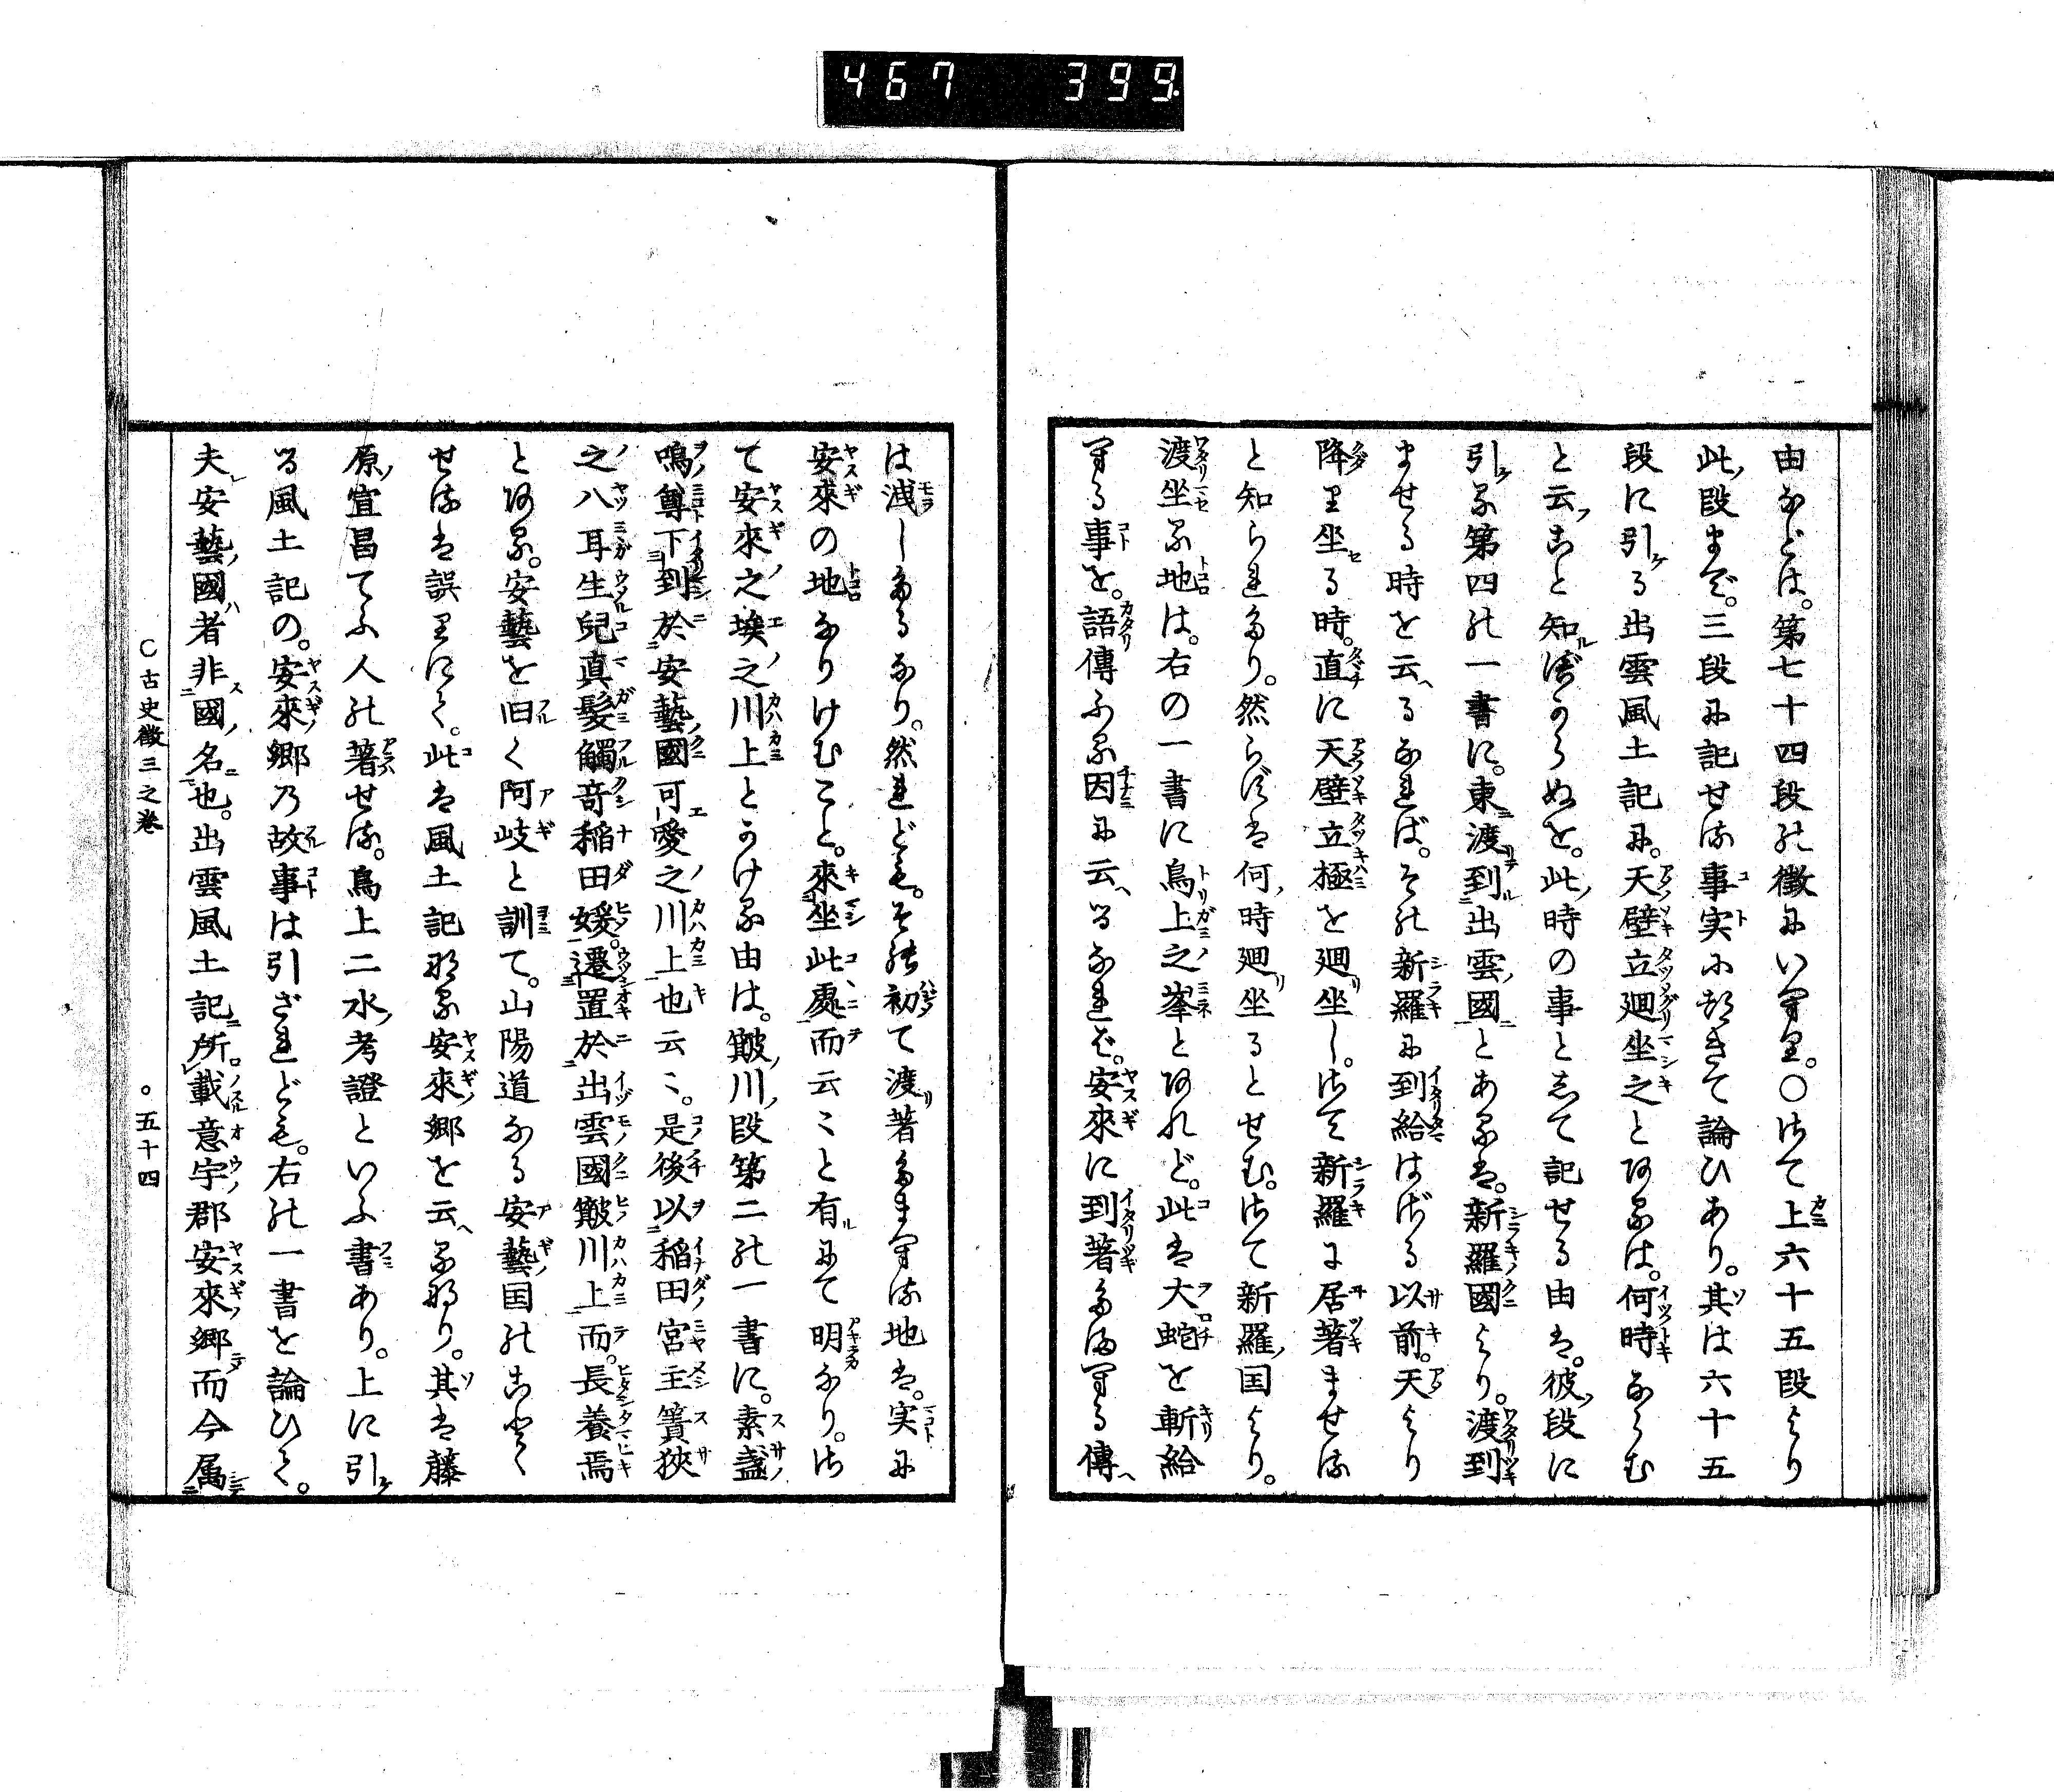 467 399.
由などは。第七十四段の徴にいへり。○さて上六十五段より
此段まで。三段に記せる事実に就きて論ひあり。其は六十五
段に引る出雲風土記に。天壁立廻坐之とあるは。何時ならむ
と云こと知べからぬを。此時の事として記せる由は。彼段に
引る第四の一書に。東渡到出雲國とあるは。新羅國より。渡到
ませる時を云るなれば。その新羅に到給はざる以前。天より
降り坐る時。直に天壁立極を廻坐し。さて新羅に居著ませる
と知られたり。然らずは何時廻坐るとせむ。さて新羅国より。
渡坐る地は。右の一書に鳥上之峯とあれど。此は大蛇を斬給
へる事を。語傳ふる因に云るなれば。安來に到著たまへる傳
は洩したるなり。然れども。その初て渡著たまへる地は。実に
安來の地なりけむこと。來坐此處而云〻と有にて明なり。さ
て安來之埃之川上とかける由は。簸川段第二の一書に。素盞
嗚尊下到於安藝國可愛之川上也云〻。是後以稲田宮主簀狭
之八耳生兒真髪觸竒稲田媛。遷置於出雲國簸川上而。長養焉
とある。安藝を旧く阿岐と訓て。山陽道なる安藝国のことゝ
せるは誤りにて。此は風土記なる安來郷を云るなり。其は藤
原宜昌てふ人の著せる。鳥上二水考證といふ書あり。上に引
る風土記の。安來郷乃故事は引ざれども。右の一書を論ひて。
夫安藝國者非國名也。出雲風土記所載意宇郡安來郷而今属
古史徴三之巻 ○五十四